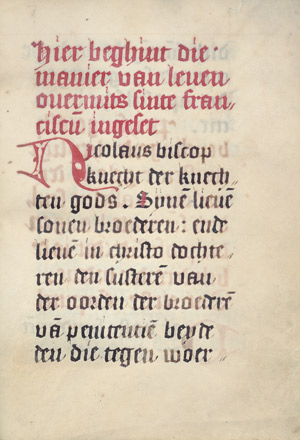 Hier beghint die
manier van leuen
ouermits sinte fran-
ciscū ingeset
Nicolaus biscop
knecht der knech-
ten gods. Sijnē lieuē
sonen broederen: ende
lieuē in christo dochte-
ren den susteren van
der oorden der broederē
vā penitenciē beyde
den die tegen woer-